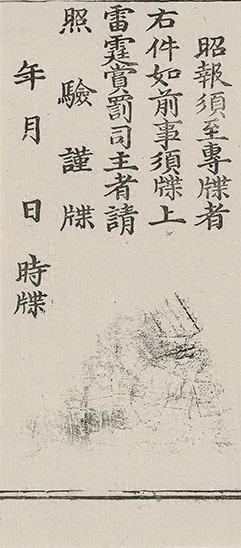 昭報須至專牒者
右件如前事須牒上
雷霆賞罰司主者請
照驗謹牒
年月日時牒